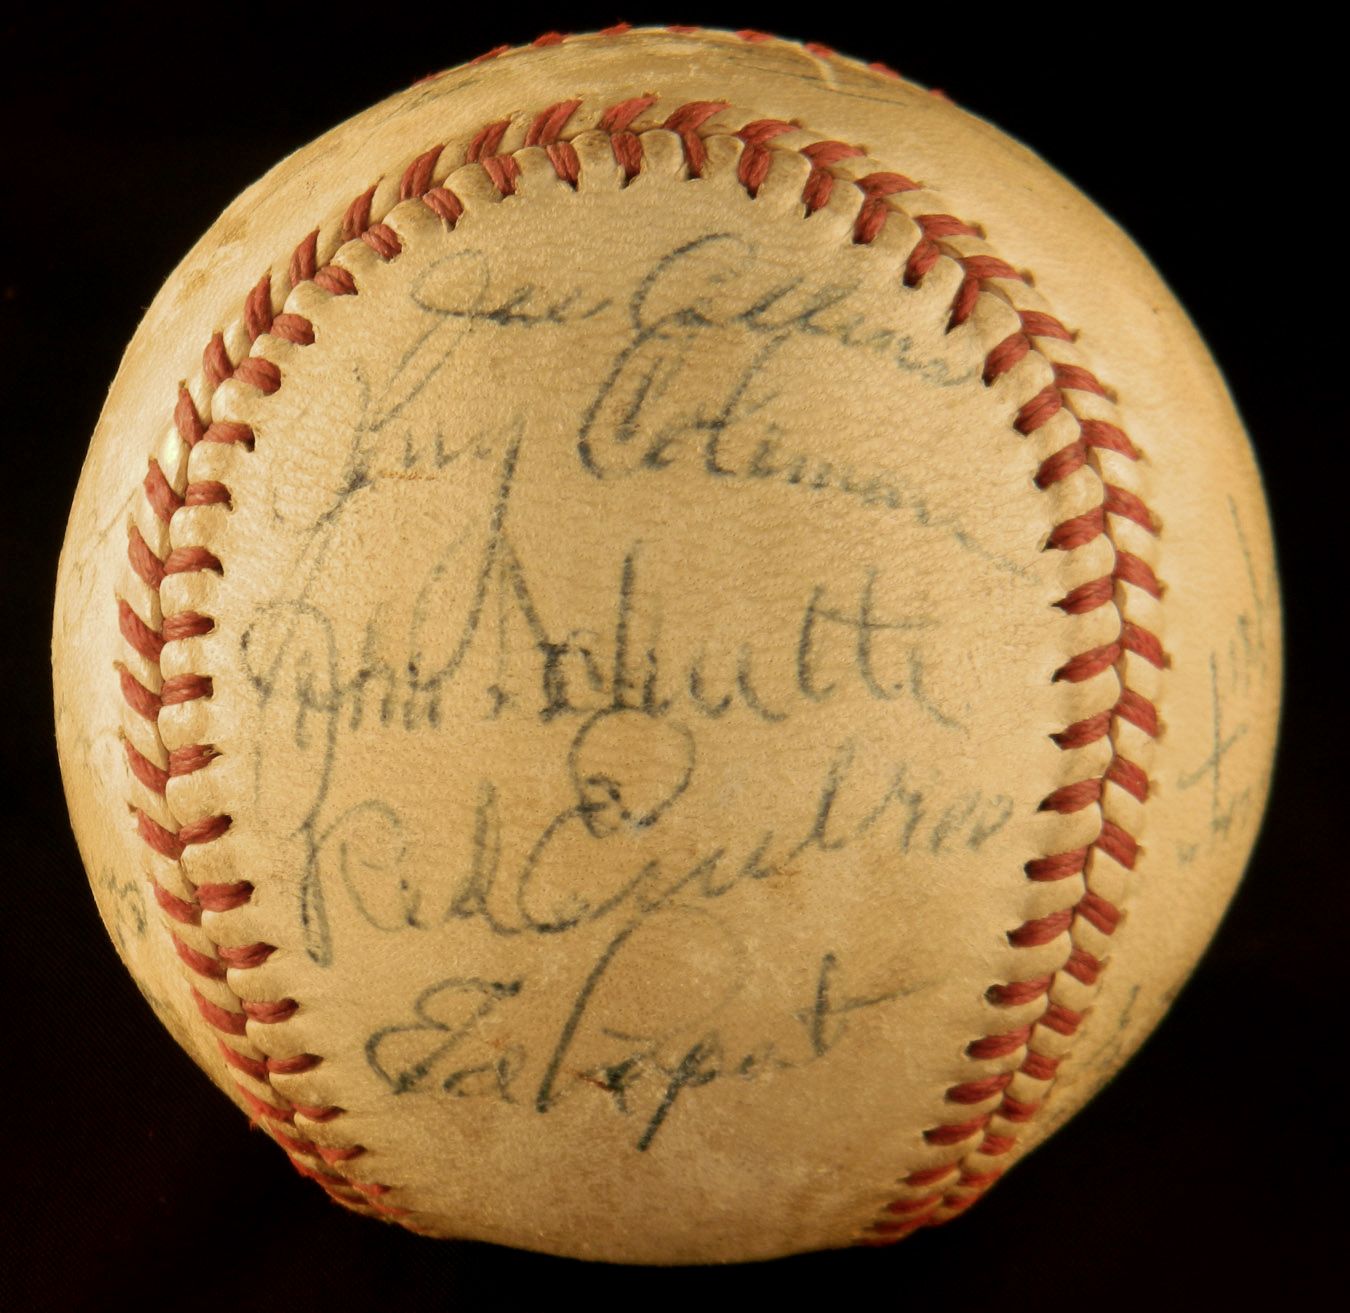 Joe Collins
Jerry Coleman
John Schulte
Red Embree
Ed Lopat